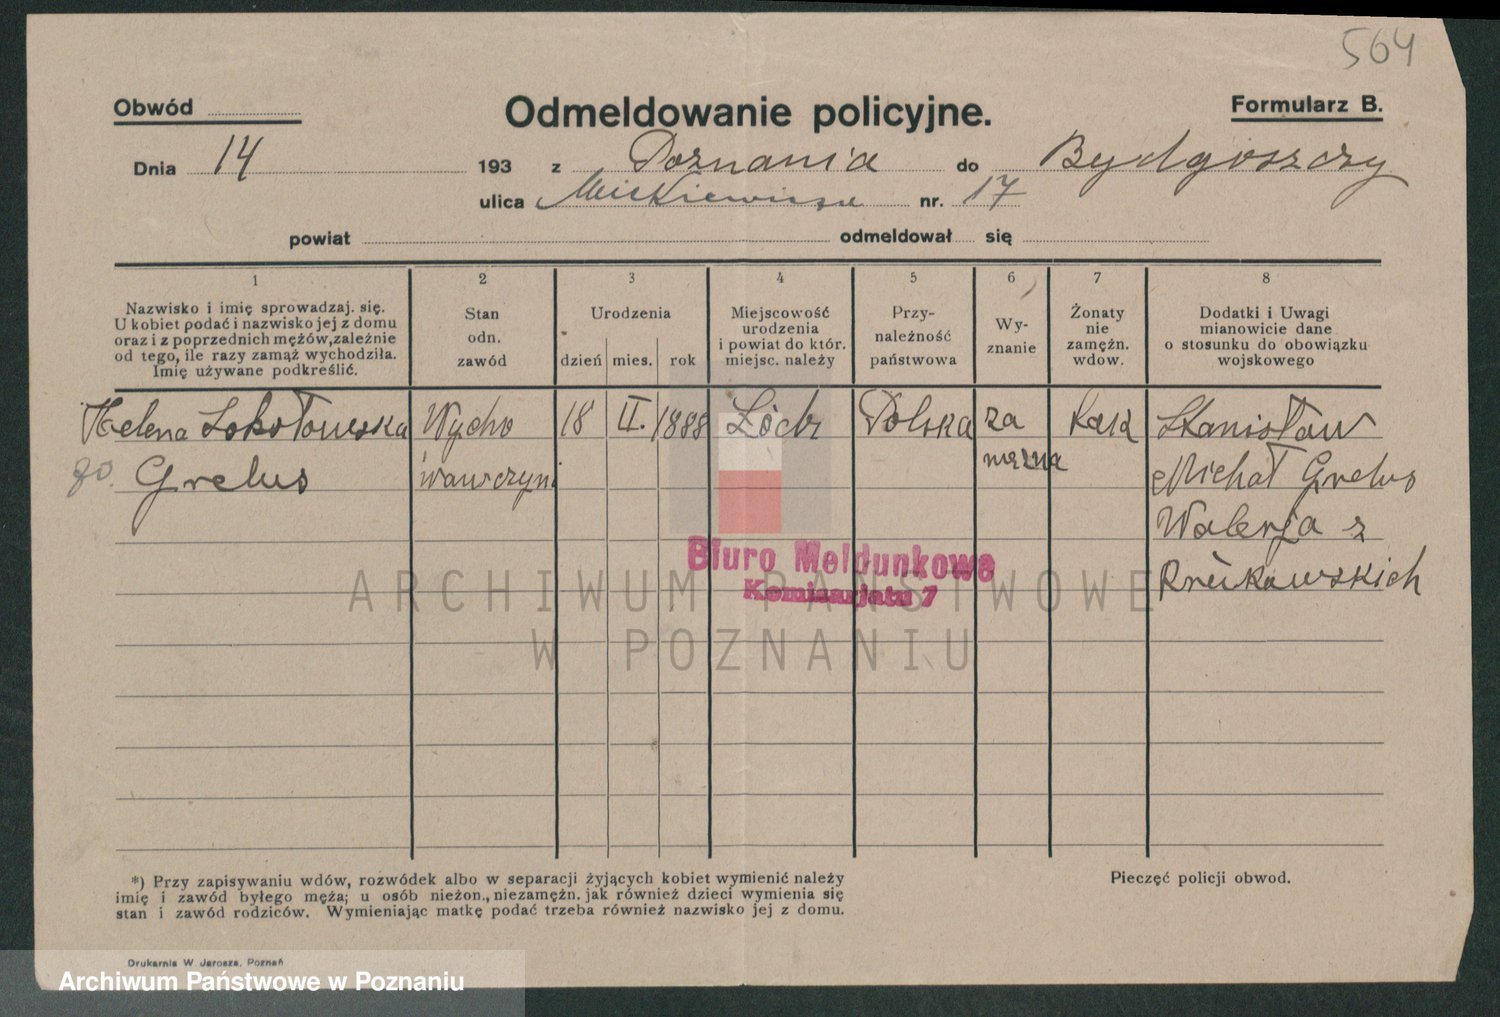 564
Obwód
Odmeldowanie policyjne.
Formularz B.
Dnia 14 193 z Poznania do Bydgoszczy
ulica Mickiewicza nr. 17
powiat odmeldował się
1 2 3 4 5 6 7 8
Nazwisko i imię sprowadzaj. się.
U kobiet podać i nazwisko jej z domu
oraz i z poprzednich mężów, zależnie
od tego, ile razy zamąż wychodziła.
Imię używane podkreślić.
Stan
odn.
zawód
Urodzenia
dzień mies. rok
Miejscowość
urodzenia
i powiat do któr.
miejsc. należy
Przy-
należność
państwowa
Wy-
znanie
Żonaty
nie
zamężn.
wdow.
Dodatki i Uwagi
mianowicie dane
o stosunku do obowiązku
wojskowego
Helena Sokołowska Wycho 18 II. 1888 Łódź Polska za kat Stanisław
Grelus wawczyni mężna Michał Grelus
Walerja z
Biuro Meldunkowe
Komisarjatu 7
ARCHIWUM PAŃSTWOWE
W POZNANIU
*) Przy zapisywaniu wdów, rozwódek albo w separacji żyjących kobiet wymienić należy
imię i zawód byłego męża; u osób nieżon., niezamężn. jak również dzieci wymienia się
stan i zawód rodziców. Wymieniając matkę podać trzeba również nazwisko jej z domu.
Pieczęć policji obwod.
Drukarnia W. Jarosza, Poznań
Archiwum Państwowe w Poznaniu